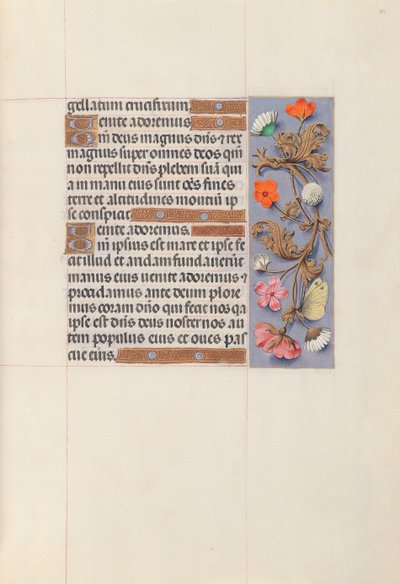 gellatum crucifixum.
Venite adoremus
Qm̄ deus magnus dn̄s ⁊ rex
magnus super omnes deos qm̄
non repellit dn̄s plebem suā q̄
a in manu eius sunt oēs fines
terre et altitudines montiū ip
se conspicit
Venite adoremus.
Qm̄ ipsius est mare et ipse fe
cit illud et aridam fundauerūt
manus eius venite adoremus ⁊
procidamus ante deum plore
mus coram dn̄o qui fecit nos q̄
ipse est dn̄s deus noster nos au
tem populus eius et oues pas
cue eius.